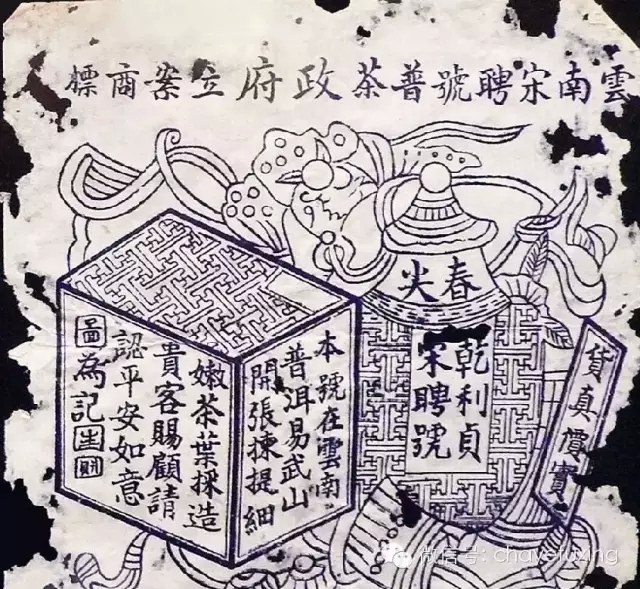 雲南宋聘號普茶政府立案商標
春尖
乾利貞
宋聘號
貨真價實
本號在雲南
普洱易武山
開張揀提細
嫩茶葉採造
貴客賜顧請
認平安如意
圖為記
微信号: chayefuxing